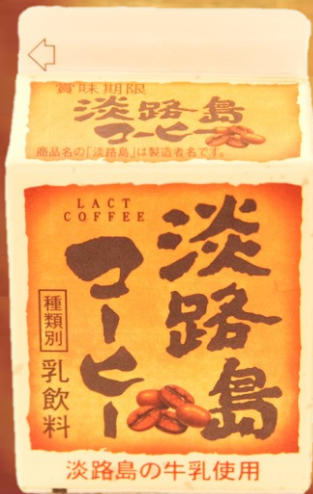 賞味期限
淡路島
コーヒー
商品名の「淡路島」は製造者名です。
LACT
COFFEE
淡路島
コーヒー
種類別
乳飲料
淡路島の牛乳使用